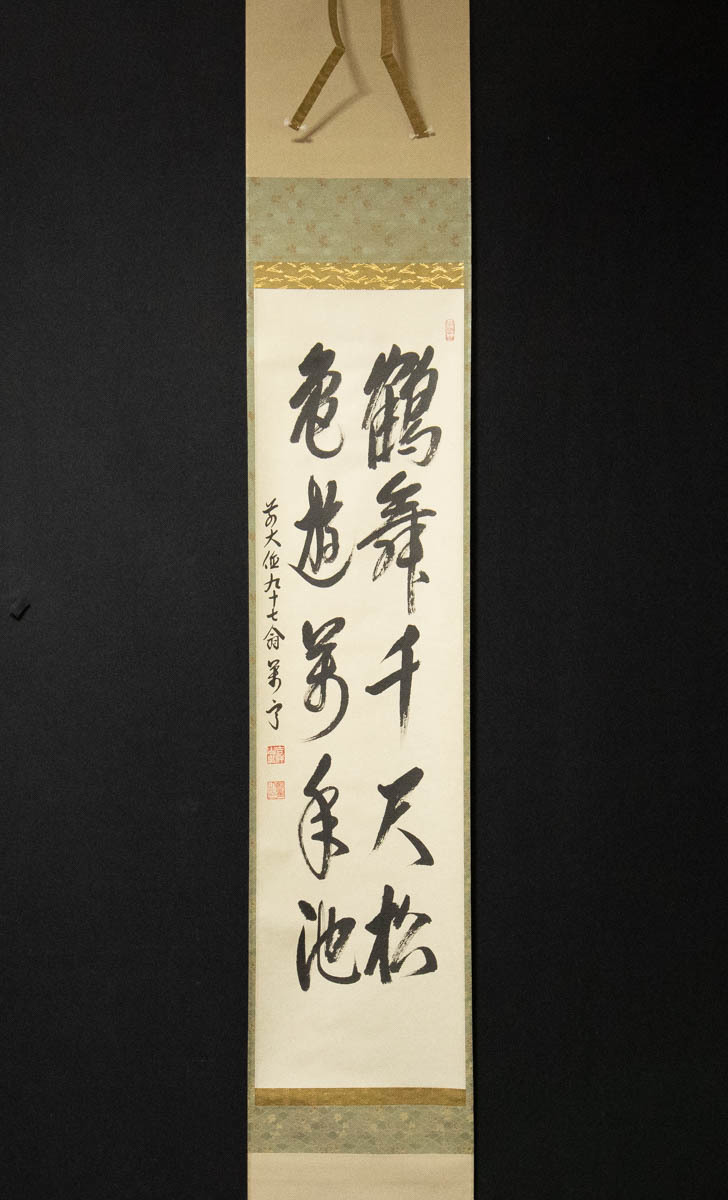 鶴舞千尺松
亀遊萬年池
前大徳九十七翁